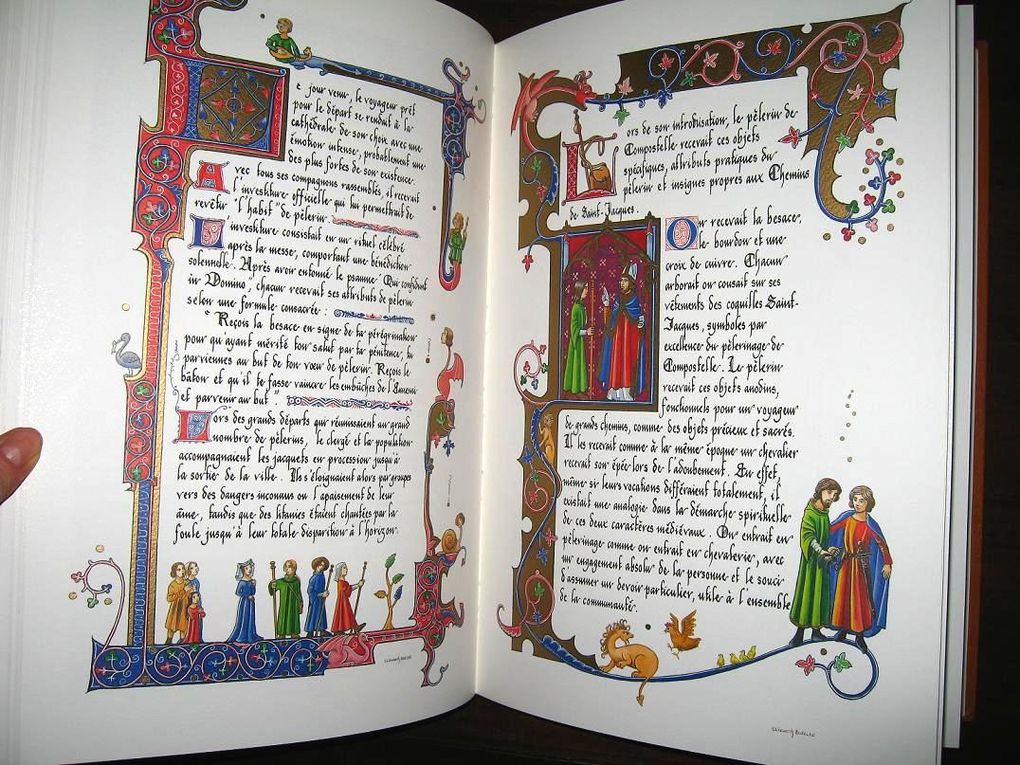 Le jour venu, le voyageur prêt
pour le départ se rendait à la
cathédrale de son choix avec une
émotion intense, probablement une
des plus fortes de son existence.
Avec tous ses compagnons rassemblés, il recevait
l'investiture officielle qui lui permettrait de
revêtir "l'habit" de pèlerin.
L'investiture consistait en un rituel célébré
après la messe, comportant une bénédiction
solennelle. Après avoir entonné le psaume "Qui confidunt
in Domino", chacun recevait ses attributs de pèlerin
selon une formule consacrée :
"Reçois la besace en signe de la pérégrination
pour qu'ayant mérité ton salut par ta pénitence, tu
parviennes au but de ton vœu de pèlerin. Reçois le
bâton et qu'il te fasse vaincre les embûches de l'Ennemi
et parvenir au but".
Lors des grands départs qui réunissaient un grand
nombre de pèlerins, le clergé et la population
accompagnaient les jacquets en procession jusqu'à
la sortie de la ville. Ils s'éloignaient alors par groupes
vers des dangers inconnus ou l'apaisement de leur
âme, tandis que des litanies étaient chantées par la
foule jusqu'à leur totale disparition à l'horizon.
Lors de son intronisation, le pèlerin de
Compostelle recevait ces objets
spécifiques, attributs pratiques du
pèlerin et insignes propres aux Chemins
de Saint-Jacques.
On recevait la besace,
le bourdon et une
croix de cuivre. Chacun
arborait ou cousait sur ses
vêtements des coquilles Saint-
Jacques, symboles par
excellence du pèlerinage de
Compostelle. Le pèlerin
recevait ces objets anodins,
fonctionnels pour un voyageur
de grands chemins, comme des objets précieux et sacrés.
Il les recevait comme à la même époque un chevalier
recevait son épée lors de l'adoubement. En effet,
même si leurs vocations différaient totalement, il
existait une analogie dans la démarche spirituelle
de ces deux caractères médiévaux. On entrait en
pèlerinage comme on entrait en chevalerie, avec
un engagement absolu de la personne et le souci
d'assumer un devoir particulier, utile à l'ensemble
de la communauté.